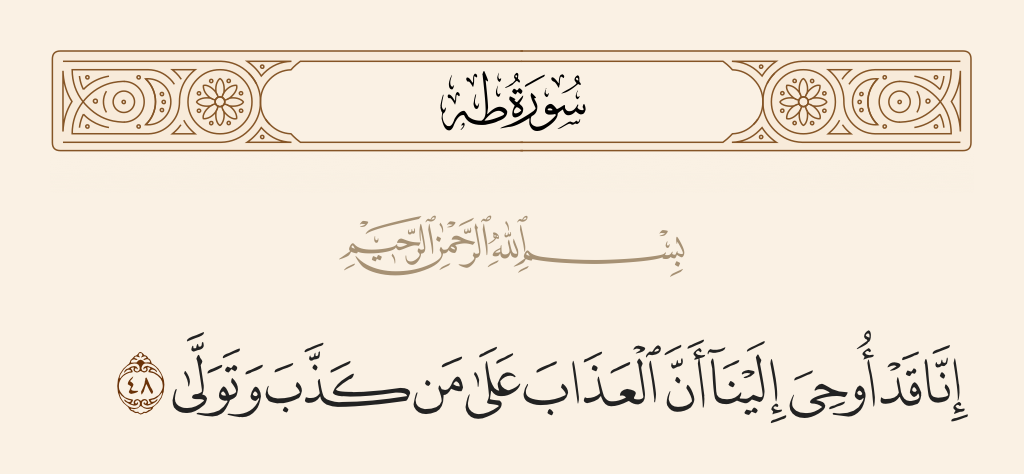 سُورَةُ طه
بِسْمِ ٱللَّهِ ٱلرَّحْمَٰنِ ٱلرَّحِيمِ
إِنَّا قَدْ أُوحِىَ إِلَيْنَآ أَنَّ ٱلْعَذَابَ عَلَىٰ مَن كَذَّبَ وَتَوَلَّىٰ ٤٨